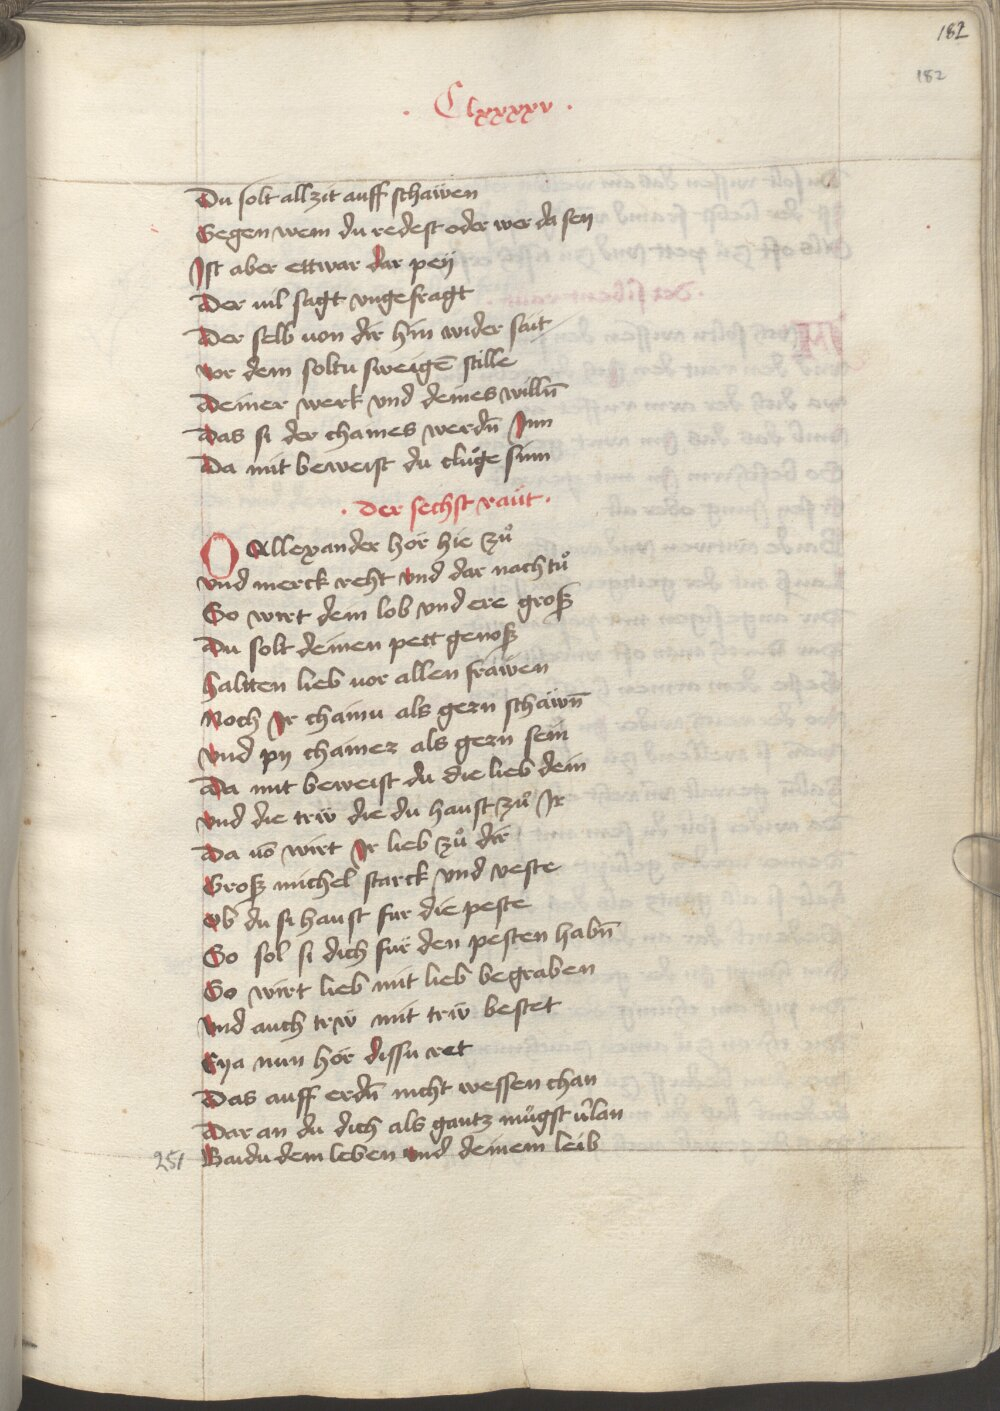 182
182
· Clxxxxv ·
Du solt allzit auff schawen
Gegen wem du redest oder wer da sey
Ist aber ettwar dar peÿ
Der uil sagt vngefragt
Der selb uon dir hin wider sait
vor dem soltu sweigē stille
Deiner werk vnd deines willn̄
Das si der chaines werdn̄ Inn
Da mit beweist du cluͦge sinn
· Der sechst raüt ·
O Allexander hör hie zuͦ
vnd merck reht vnd dar nach tuͦ
So wirt dein lob vnd ere groß
Du solt deinen pett genoß
haltten lieb uor allen frawen
Noch Ir chainu als gern schawn̄
vnd pÿ chainer als gern sein
Da mit beweist du die lieb dein
vnd die trẅ die du haust zuͦ Ir
Da uō wirt Ir lieb zuͦ dir
Groß michel starck vnd veste
Ob du si haust fur die peste
So sol si dich für den pesten habn̄
So wirt lieb mit lieb begraben
vnd auch trẅ mit trẅ bestet
Eya nun hör dissu ret
Das auff erdn̄ nicht wessen chan
Dar an du dich als gantz muͦgst v̄lan
251 Baidu dem leben vnd deinem leib